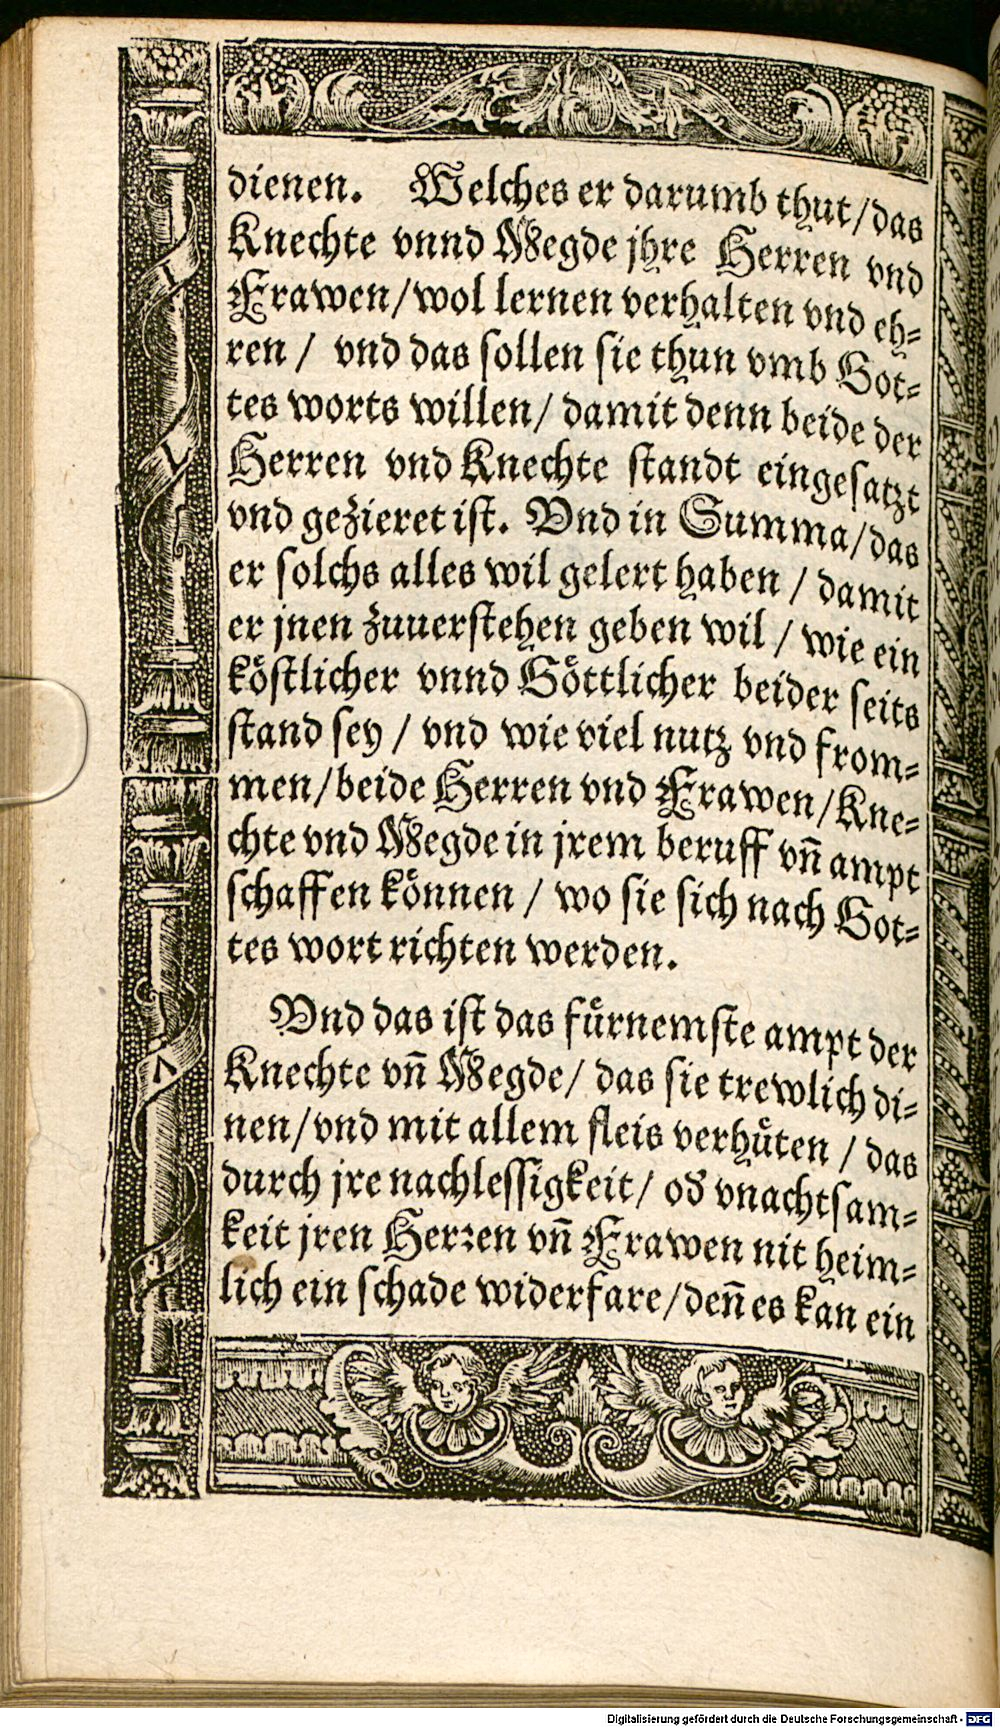 dienen. Welches er darumb thut/das
Knechte vnnd Megde jhre Herren vnd
Frawen/wol lernen verhalten vnd eh⸗
ren / vnd das sollen sie thun vmb Got⸗
tes worts willen/ damit denn beide der
Herren vnd Knechte standt eingesatzt
vnd gezieret ist. Vnd in Summa/das
er solchs alles wil gelert haben / damit
er jnen zuuerstehen geben wil / wie ein
koͤstlicher vnnd Goͤttlicher beider seits
stand sey / vnd wie viel nutz vnd from⸗
men/beide Herren vnd Frawen/Kne⸗
chte vnd Megde in jrem beruff vn̄ ampt
schaffen koͤnnen / wo sie sich nach Got⸗
tes wort richten werden.
Vnd das ist das fuͤrnemste ampt der
Knechte vn̄ Megde/ das sie trewlich di⸗
nen/vnd mit allem fleis verhuͤten / das
durch jre nachlessigkeit/ od vnachtsam⸗
keit jren Herꝛen vn̄ Frawen nit heim⸗
lich ein schade widerfare/den̄ es kan ein
Digitalisierung gefördert durch die Deutsche Forschungsgemeinschaft - DFG